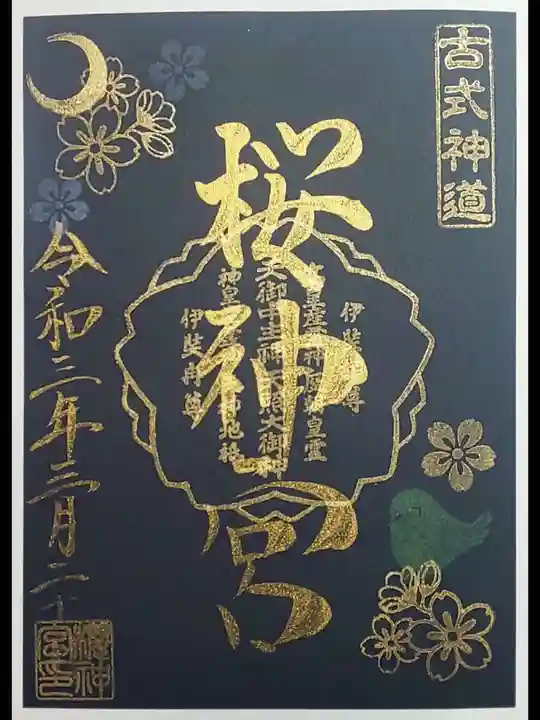 古式神道
桜神宮
伊弉諾尊
高皇産霊神歴代皇霊
天御中主神天照大御神
伊弉冉尊
令和三年三月二十
櫻神
宮印